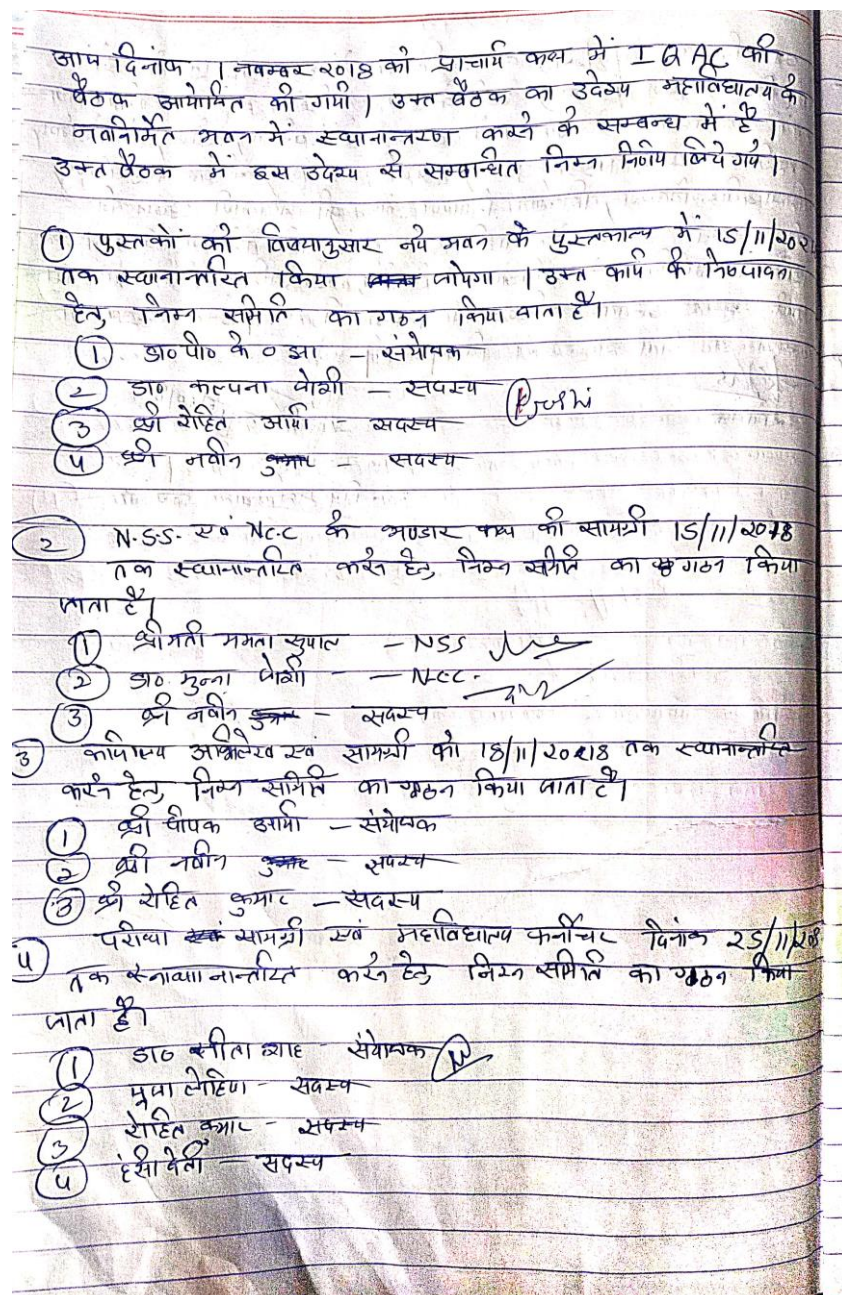 आज दिनांक 1 नवम्बर 2018 को प्राचार्य कक्ष में IQAC की
बैठक आयोजित की गयी। उक्त बैठक का उदेश्य महाविद्यालय के
नवनिर्मित भवन में स्थानान्तरण करने के सम्बन्ध में है।
उक्त बैठक में इस उदेश्य से सम्बन्धित निम्न निर्णय लिये गये।
① पुस्तकों को विषयानुसार नये भवन के पुस्तकालय में 15/11/2018
तक स्थानान्तरित किया जायेगा। उक्त कार्य के निष्पादन
हेतु निम्न समिति का गठन किया जाता है।
① डा० पी० के० झा - संयोजक
② डा० कल्पना जोशी - सदस्य Kjoshi
③ श्री रोहित आर्या - सदस्य
④ श्री नवीन कुमार - सदस्य
② N.S.S. एवं N.C.C के भण्डार कक्ष की सामग्री 15/11/2018
तक स्थानान्तरित करने हेतु निम्न समिति का गठन किया
जाता है।
① श्रीमती ममता सुयाल - NSS
② डा० मुन्ना जोशी - N.C.C.
③ श्री नवीन कुमार - सदस्य
3 कार्यालय अभिलेख एवं सामग्री को 18/11/2018 तक स्थानान्तरित
करने हेतु निम्न समिति का गठन किया जाता है।
① श्री दीपक आर्या - संयोजक
② श्री नवीन कुमार - सदस्य
③ श्री रोहित कुमार - सदस्य
④ परीक्षा सामग्री एवं महाविद्यालय फर्नीचर दिनांक 25/11/2018
तक करने हेतु निम्न समिति का गठन किया
जाता है।
① डा० संयोजक
② सदस्य
③ रोहित कुमार - सदस्य
④ हंसी देवी - सदस्य